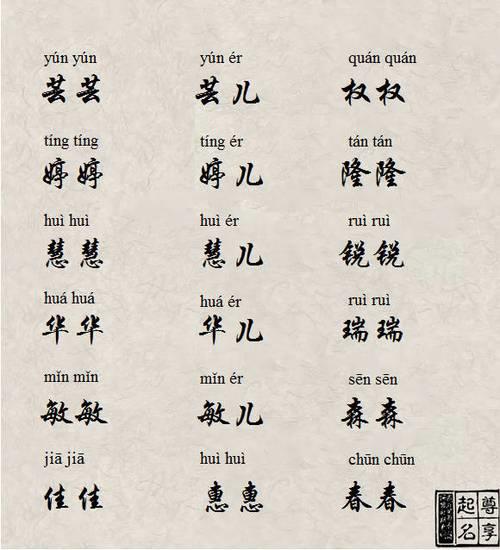 yún yún yún ér quán quán
芸芸 芸儿 权权
tíng tíng tíng ér tán tán
婷婷 婷儿 隆隆
huì huì huì ér ruì ruì
慧慧 慧儿 锐锐
huá huá huá ér ruì ruì
华华 华儿 瑞瑞
mǐn mǐn mǐn ér sēn sēn
敏敏 敏儿 森森
jiā jiā huì huì chūn chūn
佳佳 惠惠 春春
尊享
起名